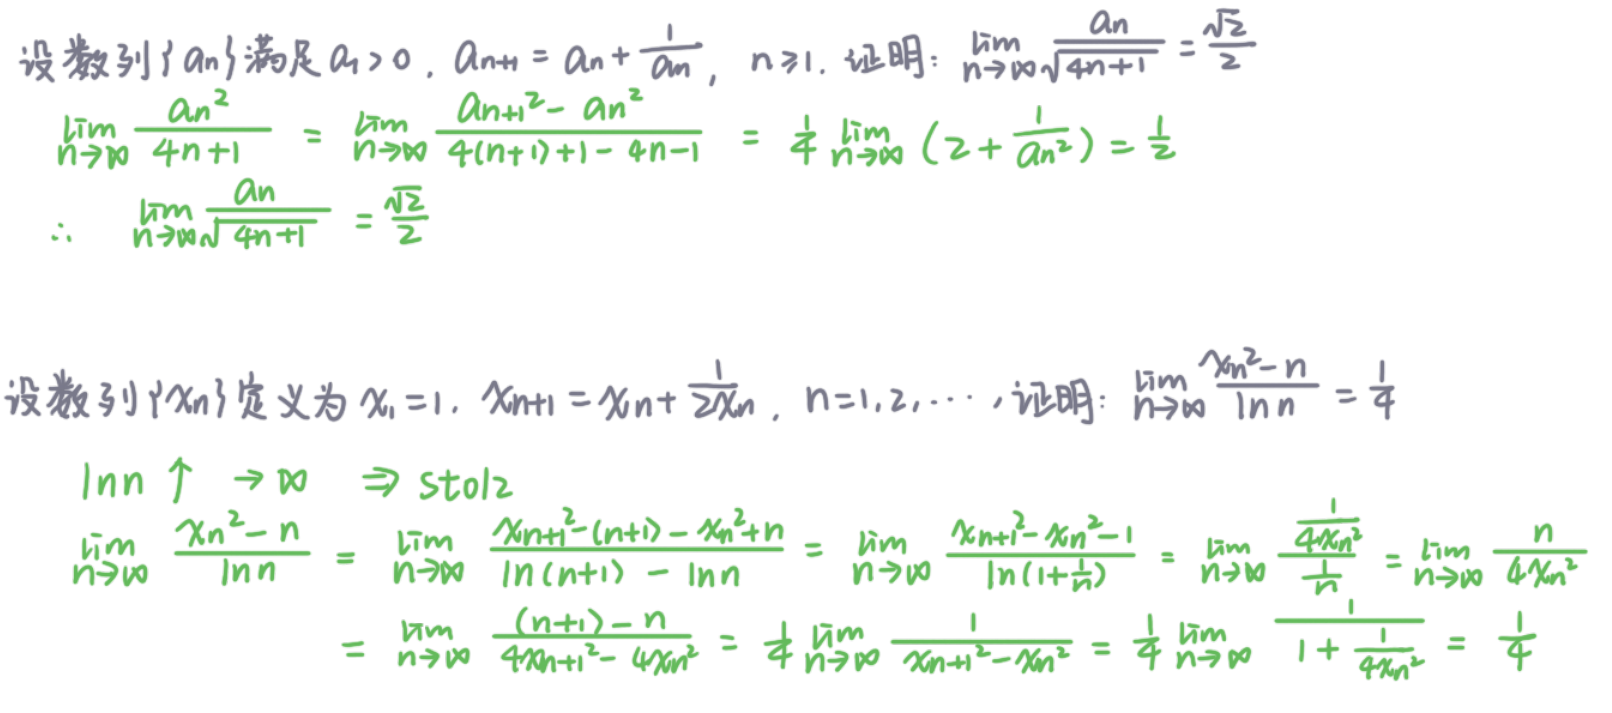 设数列{an}满足a1>0, an+1 = an + 1/an, n≥1. 证明: lim n→∞ an/√(4n+1) = √2/2
lim n→∞ an²/(4n+1) = lim n→∞ (an+1² - an²)/(4(n+1)+1-4n-1) = 1/4 lim n→∞ (2 + 1/an²) = 1/2
∴ lim n→∞ an/√(4n+1) = √2/2
设数列{xn}定义为 x1=1, xn+1 = xn + 1/(2xn), n=1,2,···,证明: lim n→∞ (xn²-n)/lnn = 1/4
lnn ↑ →∞ ⇒ stolz
lim n→∞ (xn²-n)/lnn = lim n→∞ (xn+1²-(n+1)-xn²+n)/(ln(n+1)-lnn) = lim n→∞ (xn+1²-xn²-1)/ln(1+1/n) = lim n→∞ (1/(4xn²))/(1/n) = lim n→∞ n/(4xn²)
= lim n→∞ ((n+1)-n)/(4xn+1²-4xn²) = 1/4 lim n→∞ 1/(xn+1²-xn²) = 1/4 lim n→∞ 1/(1+1/(4xn²)) = 1/4